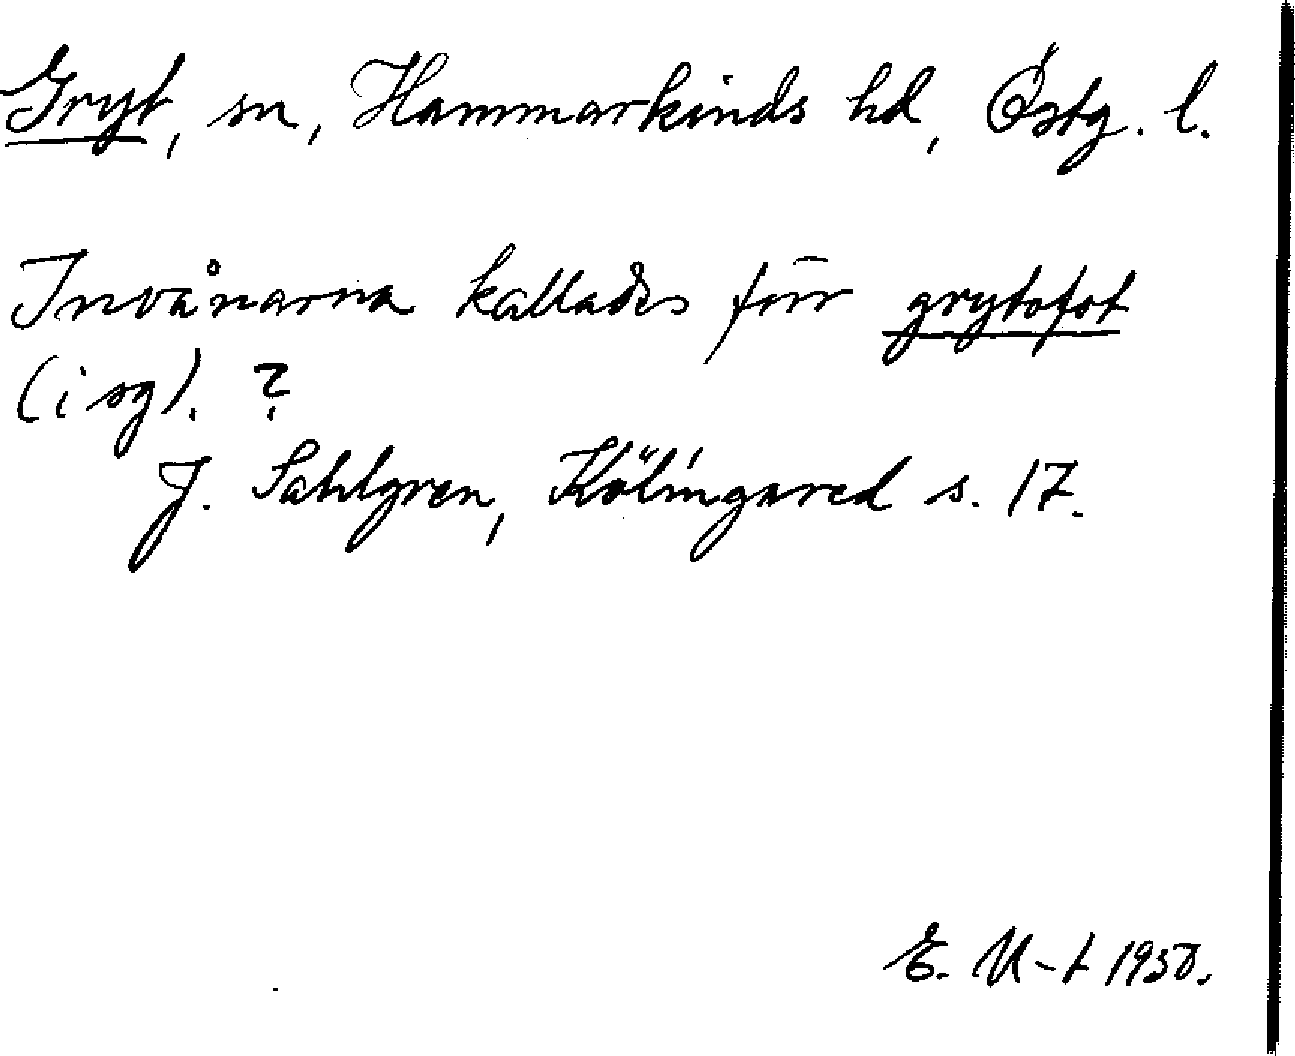 Gryt, sn, Hammarkinds hd, Östg. l.
Invånarna kallades förr grytofot
(i sg). ?
J. Sahlgren, Kölingared s. 17.
E. U-t 1950.